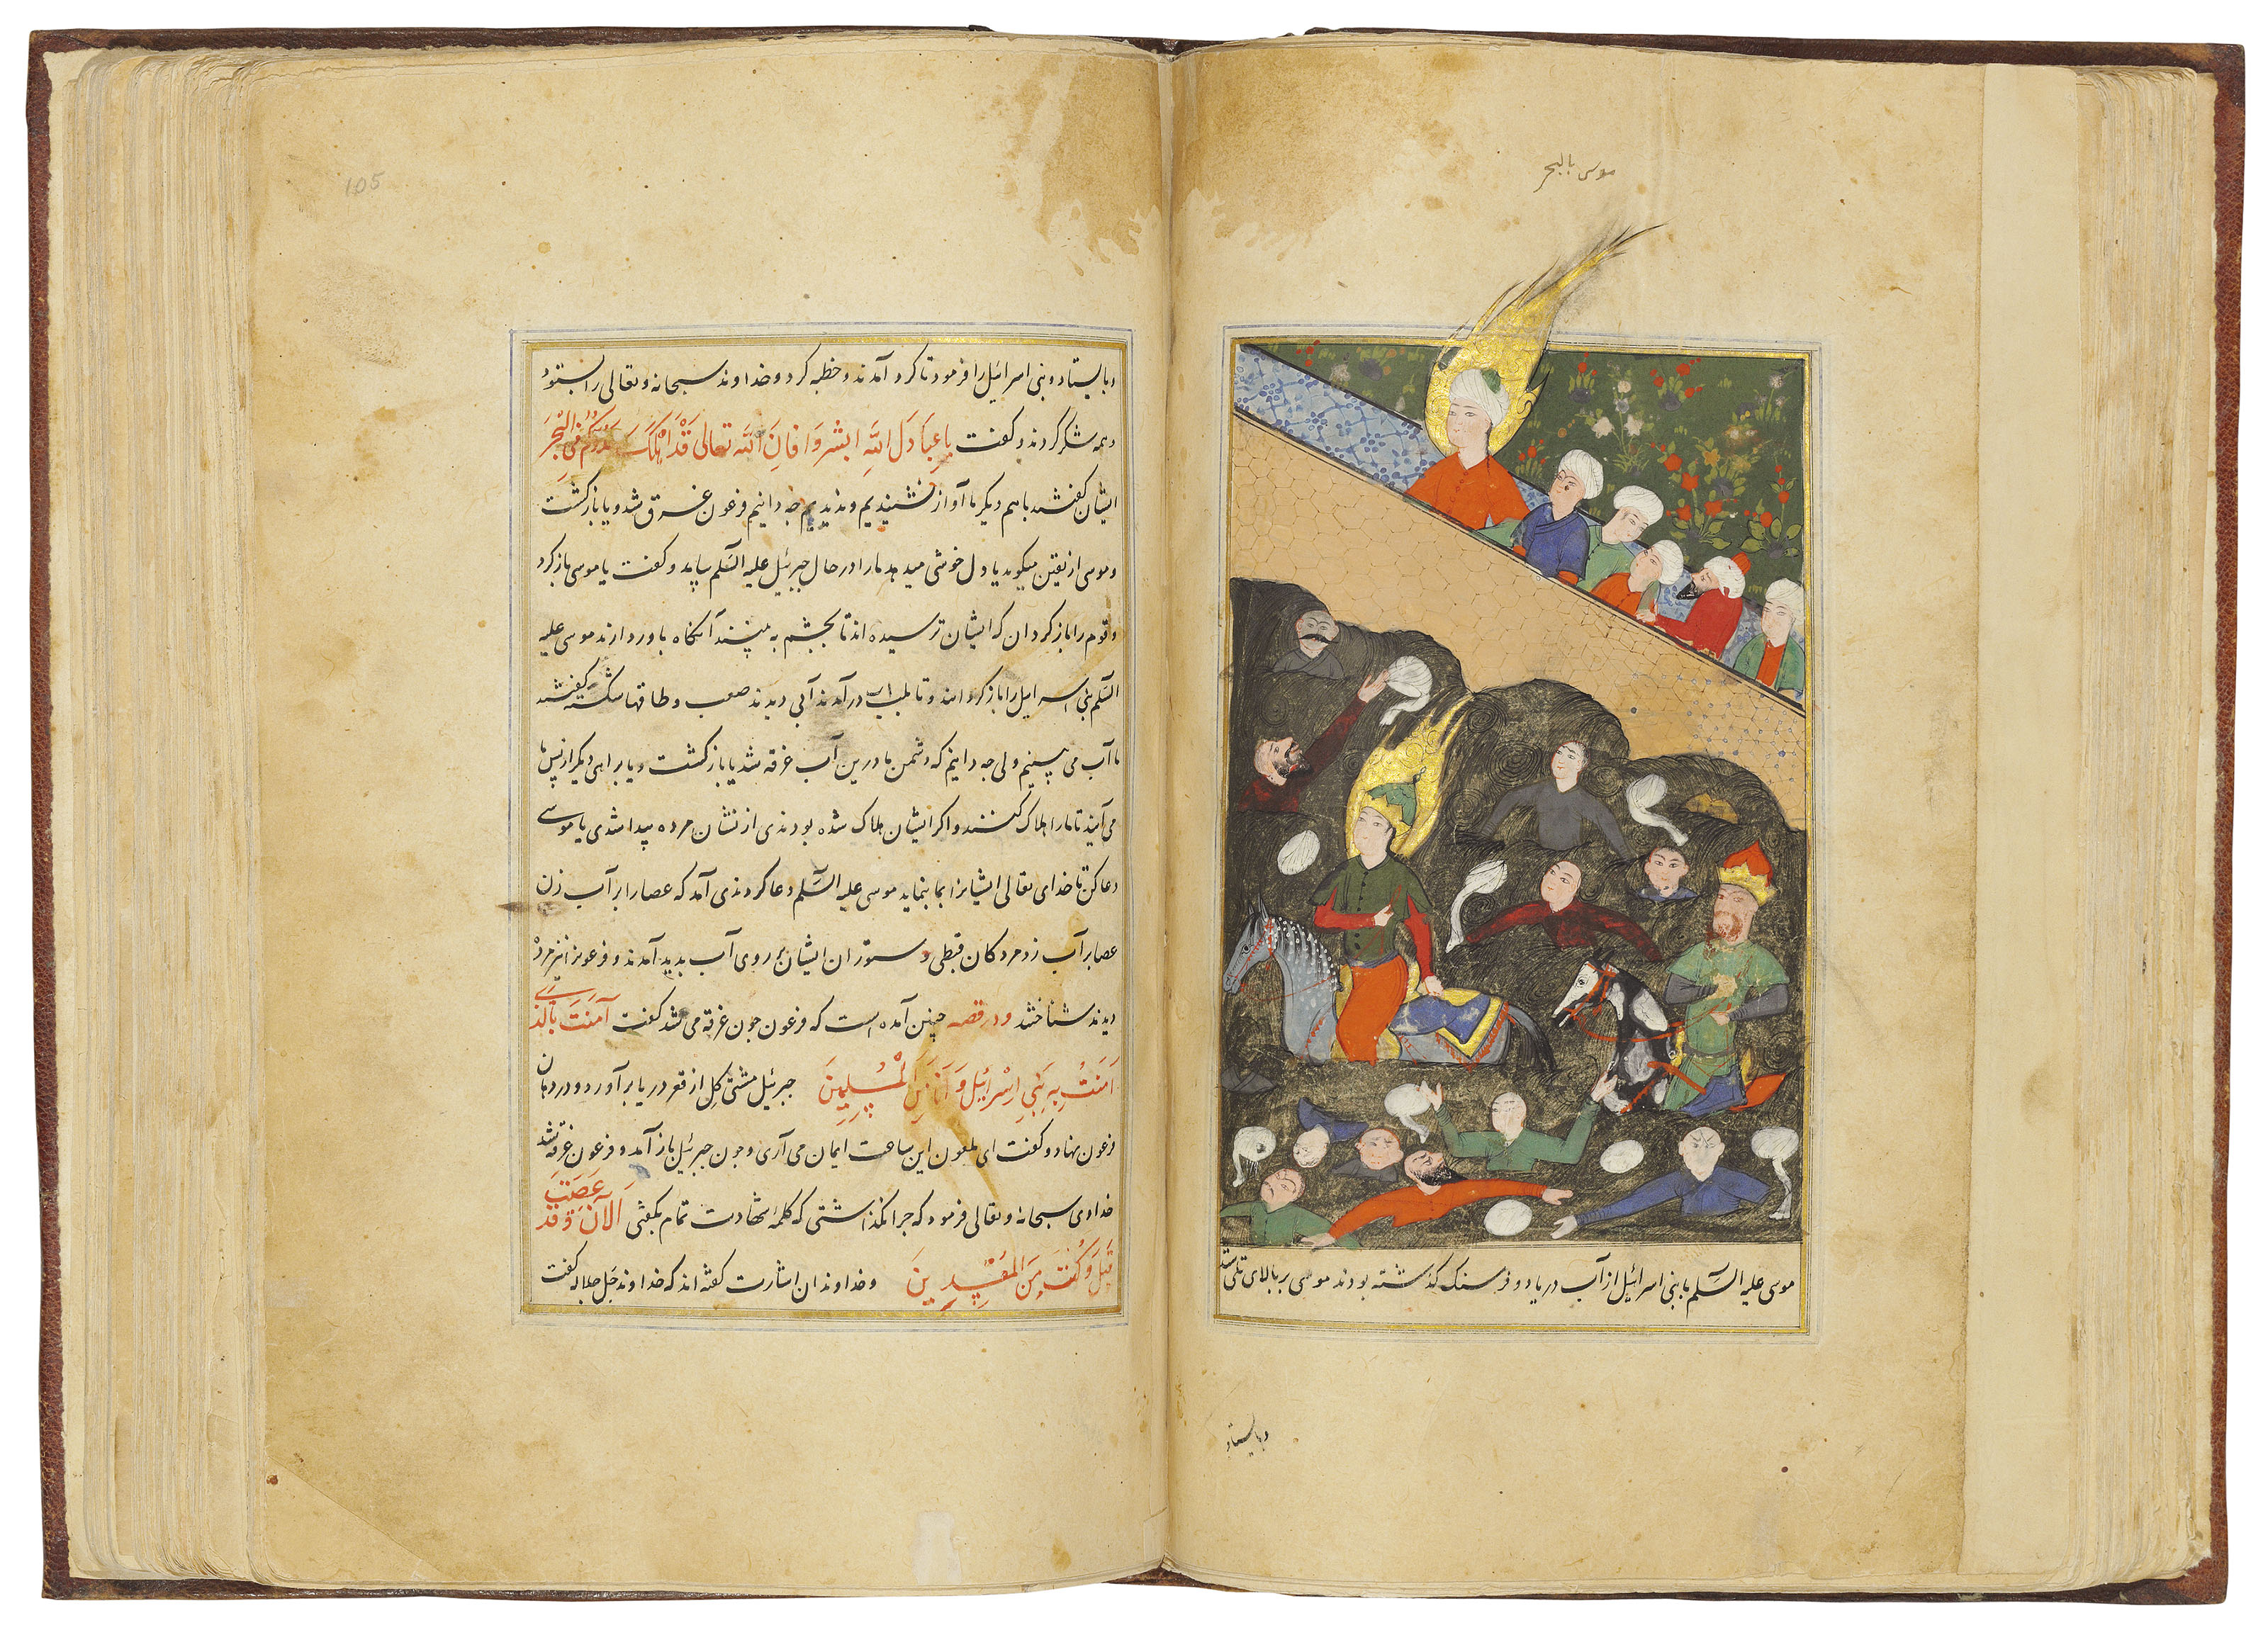 موسی بالبحر
موسی علیه السّلم با بنی اسرائیل از آب دریا دو فرسنک کذشته بودند موسی بر بالای تلی شد
وبایستاد
105
وبایستاد و بنی اسرائیل را فرمود تا کرد آمدند و خطبه کرد و خداوند سبحانه وتعالی را بستود
وهمه شکر کردند وکفت یا عِبَادَ اللَّهِ ابشروَا فانِ اللَّه تعالی قَدْ اَهْلَکَ عَدُوَّکُمْ فِی الْبَحْرِ
ایشان کفتند باهم دیکر ما آواز نشنیدیم و ندیدیم چه دانیم فرعون غرق شد ویا باز کشت
وموسی از یقین میکوید یا دل خوشی میدهد مارا در حال جبرئیل علیه السّلم بیامد وکفت یا موسی باز کرد
وقوم را باز کردان که ایشان ترسیده اند تا بچشم به بینند آنکاه باور دارند موسی علیه
السّلم بنی اسرائیل را باز کردانید و تا بلب آب در آمدند آبی دیدند صعب وطاقها شکسته کفتند
ما آب می بینیم ولی چه دانیم که دشمن ما درین آب غرقه شد یا باز کشت ویا براهی دیکر از پس ما
می آیند تا مارا هلاک کنند واکر ایشان هلاک شده بودندی از نشان مرده پیدا شدی یا موسی
دعا کن تا خدای تعالی ایشانرا بما بنماید موسی علیه السّلم دعا کرد ندی آمد که عصا را بر آب زن
عصا بر آب زد مردکان قبطی و ستوران ایشان بر روی آب بدید آمدند و فرعون نیز مرده
دیدند شناختند ودر قصه چنین آمده است که فرعون چون غرقه می شد کفت آمَنْتُ بِالَّذِی
اَمَنَتْ بِهِ بَنِی اِسْرائِیْلَ وَ اَنَا مِنَ الْمُسْلِمِینَ جبرئیل مشتی کِل از قعر دریا بر آورد و در دهان
فرعون نهاد و کفت ای ملعون این ساعت ایمان می آری وچون جبرئیل باز آمد و فرعون غرقه شد
خدای سبحانه وتعالی فرمود که چرا نکذاشتی که کلمه شهادت تمام بکفتی اَلآنَ وَقَدْ عَصَیْتَ
قَبْلُ وَکُنْتَ مِنَ الْمُفْسِدِینَ وخداوندان اشارت کفته اند که خداوند جَل جلاله کفت